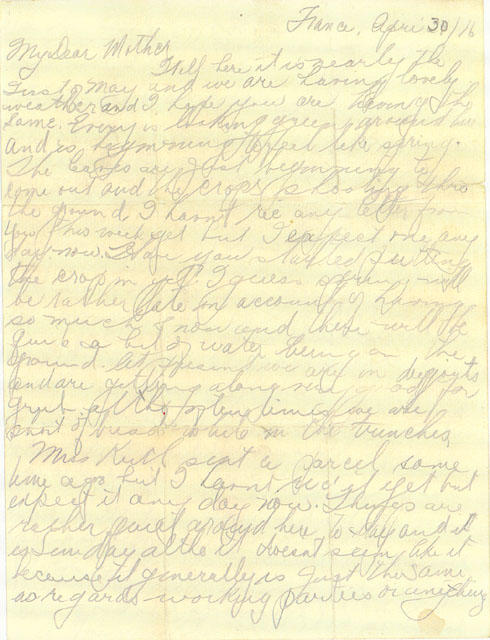 France, April 30/16
My Dear Mother
Well here it is nearly the
First of May and we are having lovely
weather and I hope you are having the
same. Every is looking green around here
and is beginning to feel like spring.
The leaves are just beginning to
come out and the crops shooting thro
the ground. I havnt rec any letter from
you this week yet but I expect one any
day now. Have you started putting
the crop in yet. I guess spring will
be rather late on account of having
so much snow and there will be
quite a bit of water being on the
ground. At present we are in
and are getting along very good for
grub. of the time we are
short of bread while in the trenches
Miss sent a parcel some
time ago but I havnt rec'd it yet but
expect it any day now. Things are
rather quiet around here to day and it
is Sunday altho it doesnt seem like it
because it generally is just the same
as regards working parties or anything